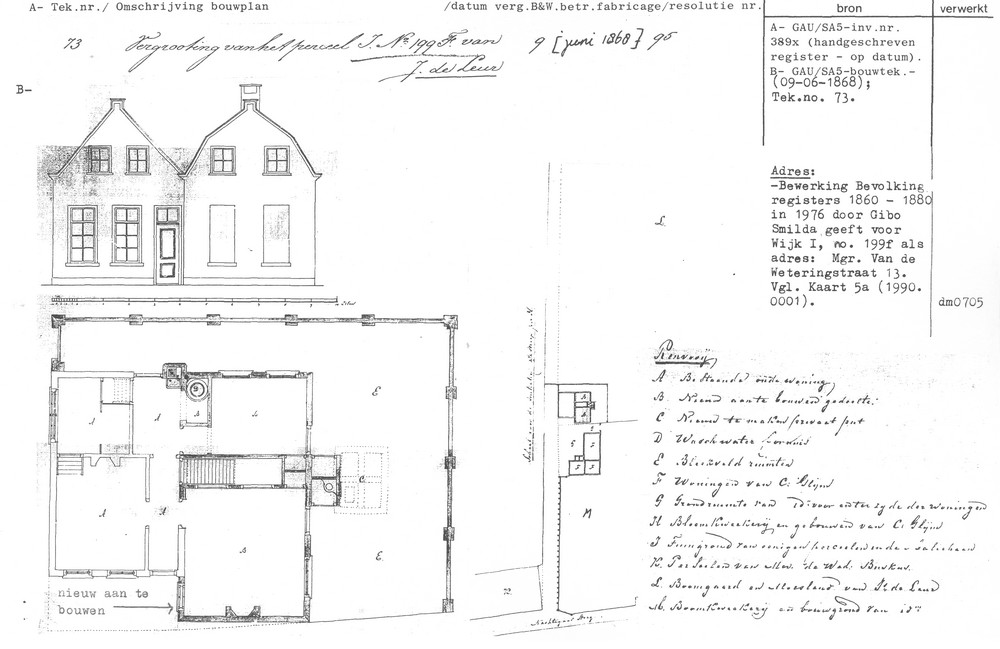 A- Tek.nr./ Omschrijving bouwplan
/datum verg.B&W.betr.fabricage/resolutie nr.
bron
verwerkt
73 Vergrooting van het perceel I. No 199 F. van
J. de Leur
9 [juni 1868] 95
A- GAU/SA5-inv.nr.
389x (handgeschreven
register - op datum).
B- GAU/SA5-bouwtek.-
(09-06-1868);
Tek.no. 73.
B-
Adres:
-Bewerking Bevolking
registers 1860 - 1880
in 1976 door Gibo
Smilda geeft voor
Wijk I, no. 199f als
adres: Mgr. Van de
Weteringstraat 13.
Vgl. Kaart 5a (1990.
0001).
dm0705
L
E
E
C
A
A
A
A
M
nieuw aan te
bouwen
Renvooij
A Bestaande oude woning
B. Nieuw aan te bouwen gedeelte
C Nieuw te maken privaat put
D Waschwater fornuis
E Bleekveld ruimten
F Woningen van C. Glijm
G Grondruimte van id: voor enter zyde der woningen
H Bloemkweekerij en gebouwen van C. Glijm
K. Perceelen van Mev. de Wed.
L. Boomgaard en Moesland van J. de Leur
M. Boomkweekerij en bouwgrond van id: